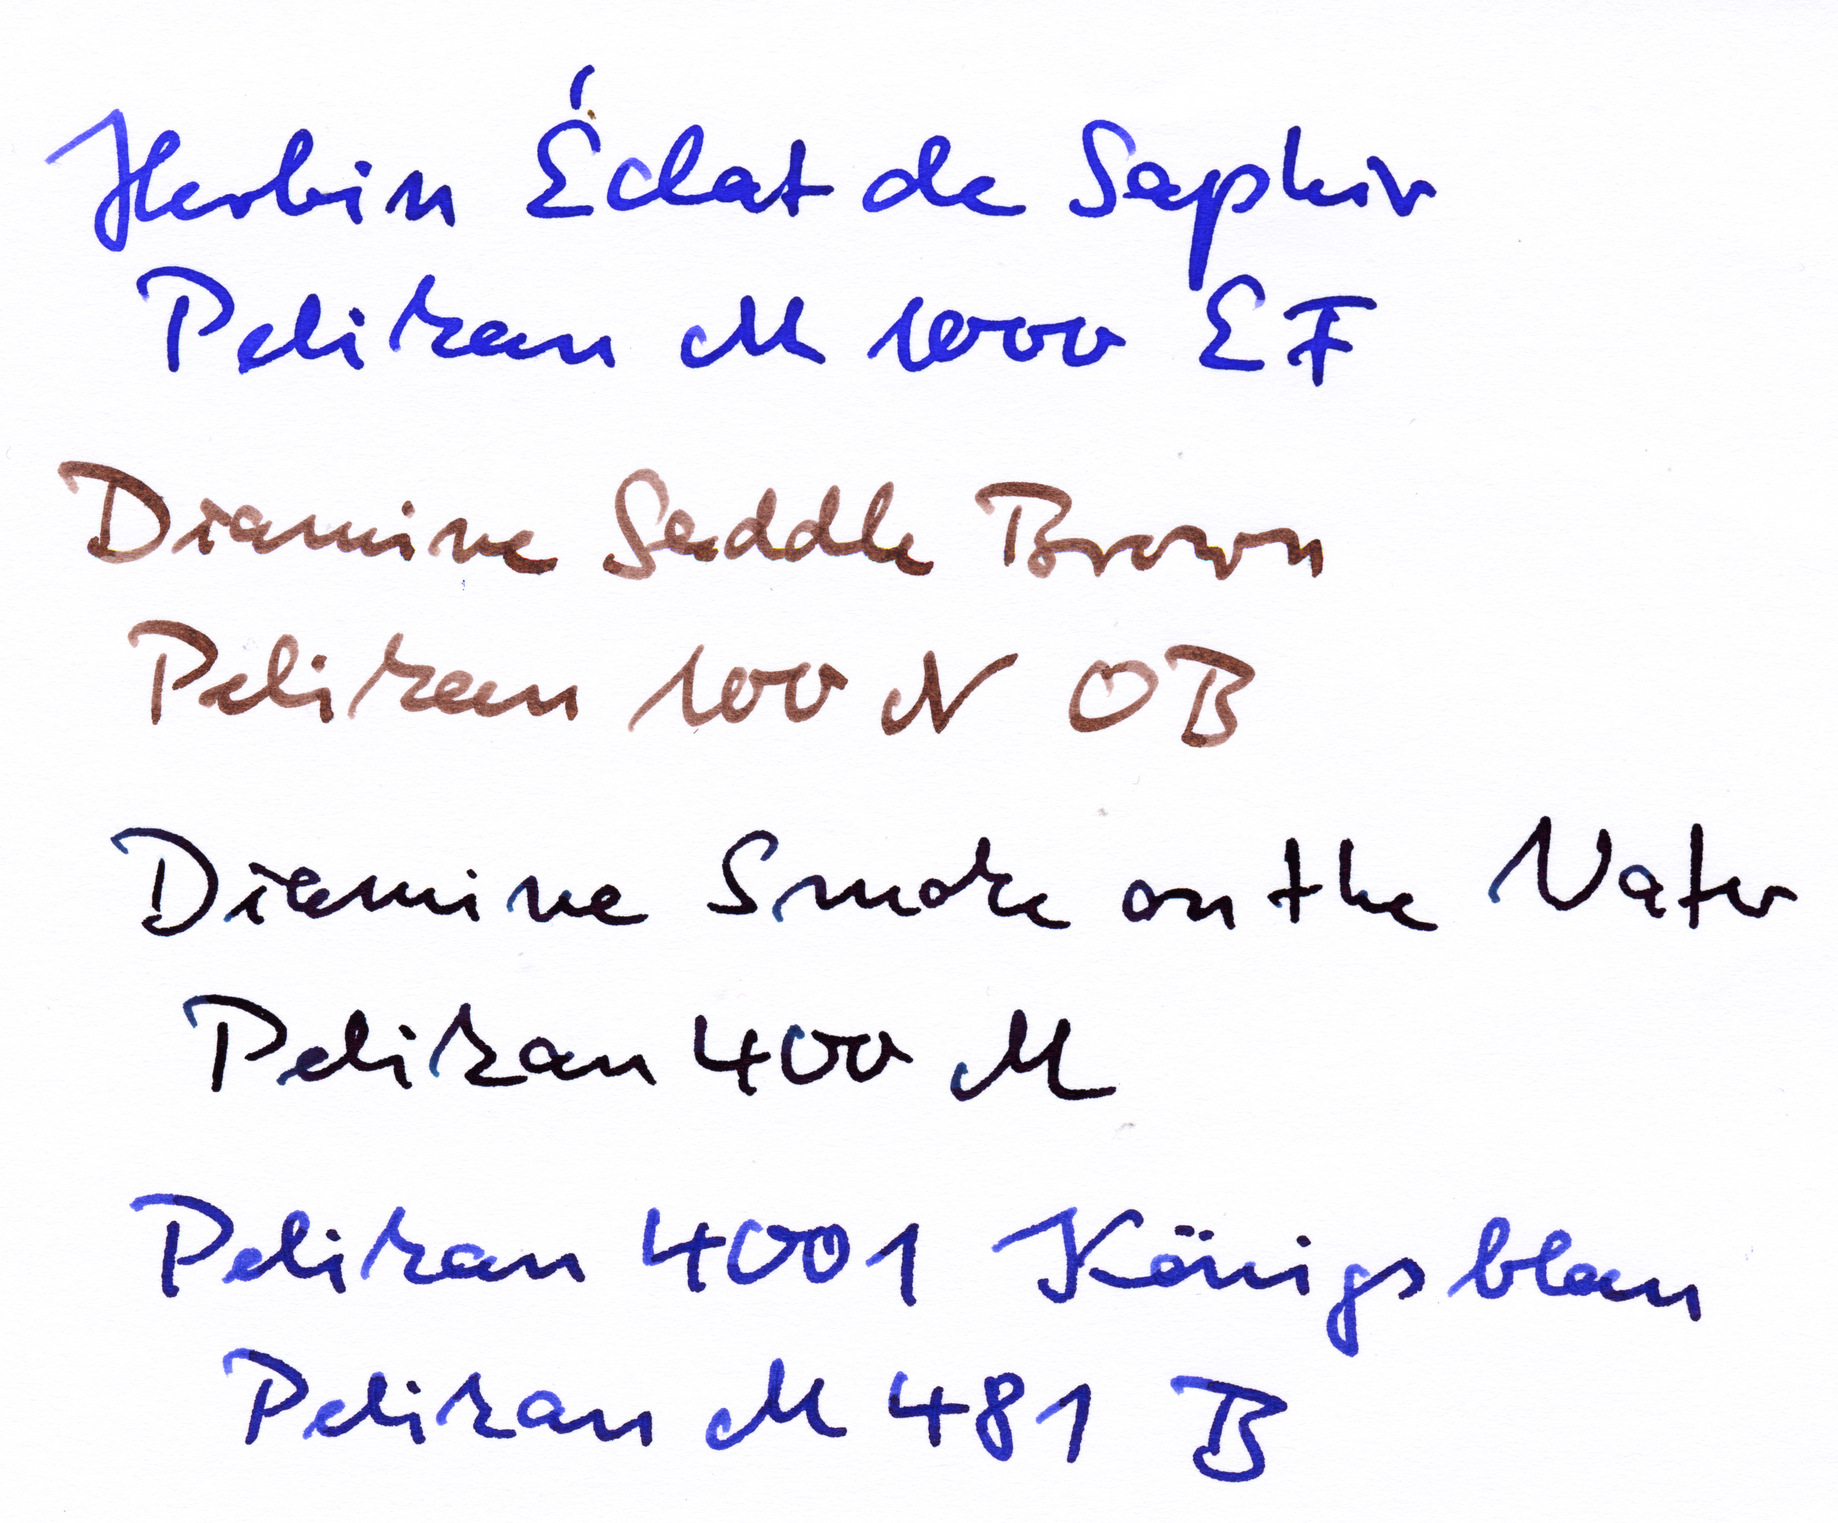 Herbin Éclat de Saphir
Pelikan M 1000 EF
Diamine Saddle Brown
Pelikan 100 N OB
Diamine Smoke on the Water
Pelikan 400 M
Pelikan 4001 Königsblau
Pelikan M 481 B